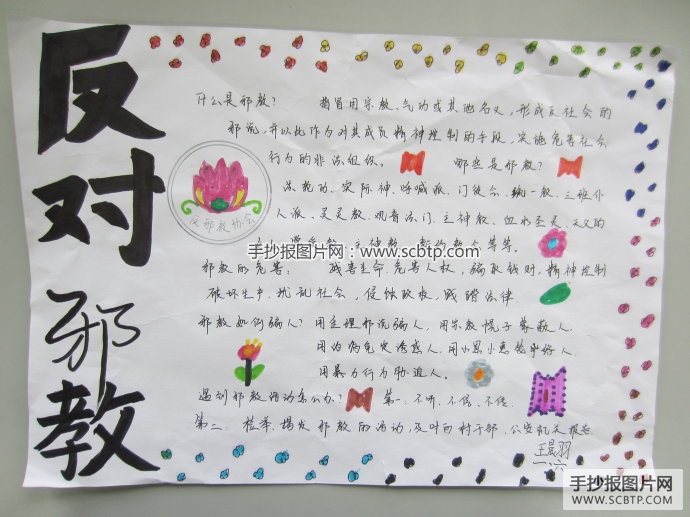 反对邪教
什么是邪教？ 指冒用宗教、气功或其他名义，形成反社会的
邪说，并以此作为对其成员精神控制的手段，实施危害社会
行为的非法组织。 哪些是邪教？
法轮功、实际神、呼喊派、门徒会、统一教、三班仆
人派、灵灵教、观音法门、主神教、血水圣灵、天父的
反邪教协会
手抄报图片网：www.scbtp.com
邪教的危害： 残害生命、危害人权，骗取钱财，精神控制
破坏生产，扰乱社会，侵蚀政权，践踏法律
邪教如何骗人？ 用歪理邪说骗人，用宗教幌子蒙蔽人，
用治病免灾诱惑人，用小恩小惠
用暴力行为胁迫人。
遇到邪教活动怎么办？ 第一：不听、不信、不传
第二：检举、揭发邪教的活动，及时向村干部、公安机关报告
王晨羽
一·六
手抄报图片网
WWW.SCBTP.COM